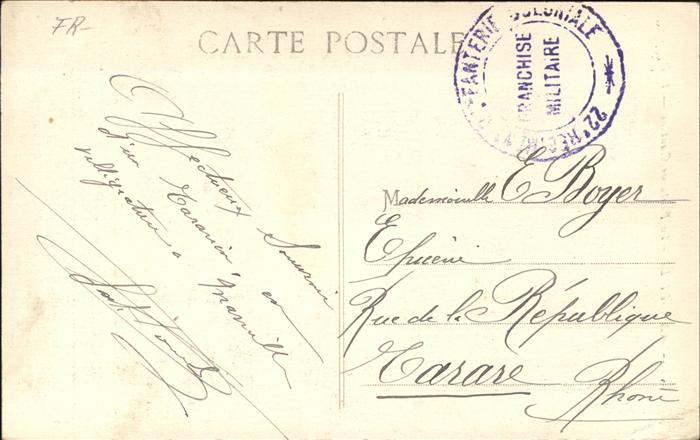 FR-
CARTE POSTALE
INFANTERIE COLONIALE
22e REGIMENT D'
FRANCHISE
MILITAIRE
Affectueux Souvenir
d'un Tararien en
villégiature à Marseille
Mademoiselle E Boyer
Epicerie
Rue de la République
Tarare
Rhône